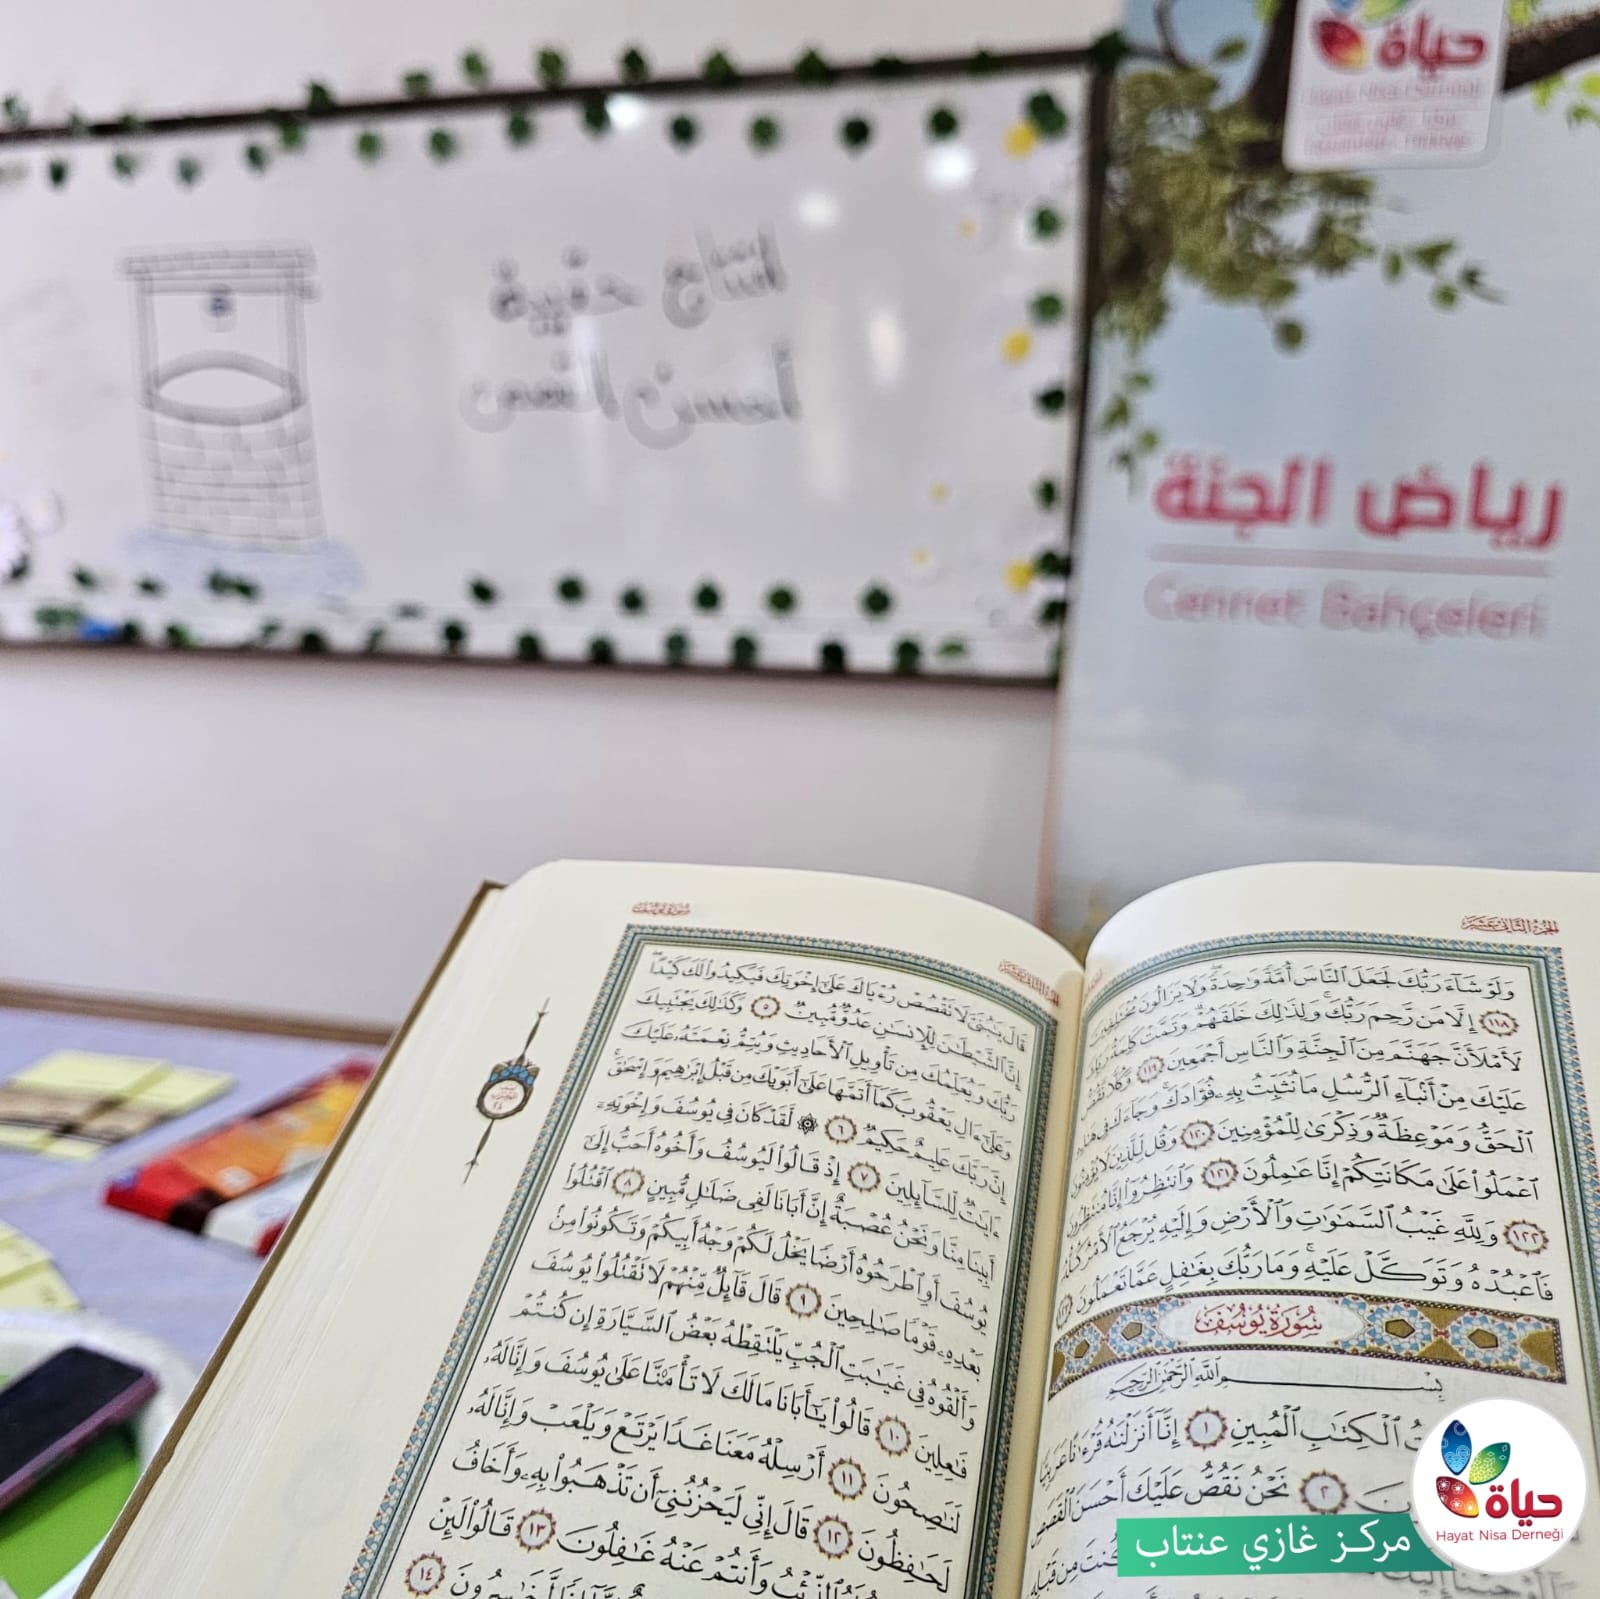 حياة
Hayat Nisa Derneği
رياض الجنة
Cennet Bahçeleri
أحسن القصص
الجزء الثاني عشر
وَلَوْ شَآءَ رَبُّكَ لَجَعَلَ ٱلنَّاسَ أُمَّةً وَٰحِدَةً ۖ وَلَا يَزَالُونَ مُخْتَلِفِينَ
١١٨ إِلَّا مَن رَّحِمَ رَبُّكَ ۚ وَلِذَٰلِكَ خَلَقَهُمْ ۗ وَتَمَّتْ كَلِمَةُ رَبِّكَ
لَأَمْلَأَنَّ جَهَنَّمَ مِنَ ٱلْجِنَّةِ وَٱلنَّاسِ أَجْمَعِينَ ١١٩ وَكُلًّا نَّقُصُّ
عَلَيْكَ مِنْ أَنۢبَآءِ ٱلرُّسُلِ مَا نُثَبِّتُ بِهِۦ فُؤَادَكَ ۚ وَجَآءَكَ فِى هَٰذِهِ
ٱلْحَقُّ وَمَوْعِظَةٌ وَذِكْرَىٰ لِلْمُؤْمِنِينَ ١٢٠ وَقُل لِّلَّذِينَ لَا يُؤْمِنُونَ
ٱعْمَلُوا۟ عَلَىٰ مَكَانَتِكُمْ إِنَّا عَٰمِلُونَ ١٢١ وَٱنتَظِرُوٓا۟ إِنَّا مُنتَظِرُونَ
١٢٢ وَلِلَّهِ غَيْبُ ٱلسَّمَٰوَٰتِ وَٱلْأَرْضِ وَإِلَيْهِ يُرْجَعُ ٱلْأَمْرُ كُلُّهُۥ
فَٱعْبُدْهُ وَتَوَكَّلْ عَلَيْهِ ۚ وَمَا رَبُّكَ بِغَٰفِلٍ عَمَّا تَعْمَلُونَ ١٢٣
سُورَةُ يُوسُفَ
بِسْمِ ٱللَّهِ ٱلرَّحْمَٰنِ ٱلرَّحِيمِ
ٱلْكِتَٰبِ ٱلْمُبِينِ ١ إِنَّآ أَنزَلْنَٰهُ قُرْءَٰنًا عَرَبِيًّا
٢ نَحْنُ نَقُصُّ عَلَيْكَ أَحْسَنَ ٱلْقَصَصِ
كُنتَ مِن قَبْلِهِ
سورة يوسف
قَالَ يَٰبُنَىَّ لَا تَقْصُصْ رُءْيَاكَ عَلَىٰٓ إِخْوَتِكَ فَيَكِيدُوا۟ لَكَ كَيْدًا ۖ
إِنَّ ٱلشَّيْطَٰنَ لِلْإِنسَٰنِ عَدُوٌّ مُّبِينٌ ٥ وَكَذَٰلِكَ يَجْتَبِيكَ
رَبُّكَ وَيُعَلِّمُكَ مِن تَأْوِيلِ ٱلْأَحَادِيثِ وَيُتِمُّ نِعْمَتَهُۥ عَلَيْكَ
وَعَلَىٰٓ ءَالِ يَعْقُوبَ كَمَآ أَتَمَّهَا عَلَىٰٓ أَبَوَيْكَ مِن قَبْلُ إِبْرَٰهِيمَ وَإِسْحَٰقَ ۚ
إِنَّ رَبَّكَ عَلِيمٌ حَكِيمٌ ٦ ۞ لَّقَدْ كَانَ فِى يُوسُفَ وَإِخْوَتِهِۦٓ
ءَايَٰتٌ لِّلسَّآئِلِينَ ٧ إِذْ قَالُوا۟ لَيُوسُفُ وَأَخُوهُ أَحَبُّ إِلَىٰٓ
أَبِينَا مِنَّا وَنَحْنُ عُصْبَةٌ إِنَّ أَبَانَا لَفِى ضَلَٰلٍ مُّبِينٍ ٨ ٱقْتُلُوا۟
يُوسُفَ أَوِ ٱطْرَحُوهُ أَرْضًا يَخْلُ لَكُمْ وَجْهُ أَبِيكُمْ وَتَكُونُوا۟ مِنۢ
بَعْدِهِۦ قَوْمًا صَٰلِحِينَ ٩ قَالَ قَآئِلٌ مِّنْهُمْ لَا تَقْتُلُوا۟ يُوسُفَ
وَأَلْقُوهُ فِى غَيَٰبَتِ ٱلْجُبِّ يَلْتَقِطْهُ بَعْضُ ٱلسَّيَّارَةِ إِن كُنتُمْ
فَٰعِلِينَ ١٠ قَالُوا۟ يَٰٓأَبَانَا مَا لَكَ لَا تَأْمَ۫نَّا عَلَىٰ يُوسُفَ وَإِنَّا لَهُۥ
لَنَٰصِحُونَ ١١ أَرْسِلْهُ مَعَنَا غَدًا يَرْتَعْ وَيَلْعَبْ وَإِنَّا لَهُۥ
لَحَٰفِظُونَ ١٢ قَالَ إِنِّى لَيَحْزُنُنِىٓ أَن تَذْهَبُوا۟ بِهِۦ وَأَخَافُ
ٱلذِّئْبُ وَأَنتُمْ عَنْهُ غَٰفِلُونَ ١٣ قَالُوا۟ لَئِنْ
١٤
مركز غازي عنتاب
حياة
Hayat Nisa Derneği